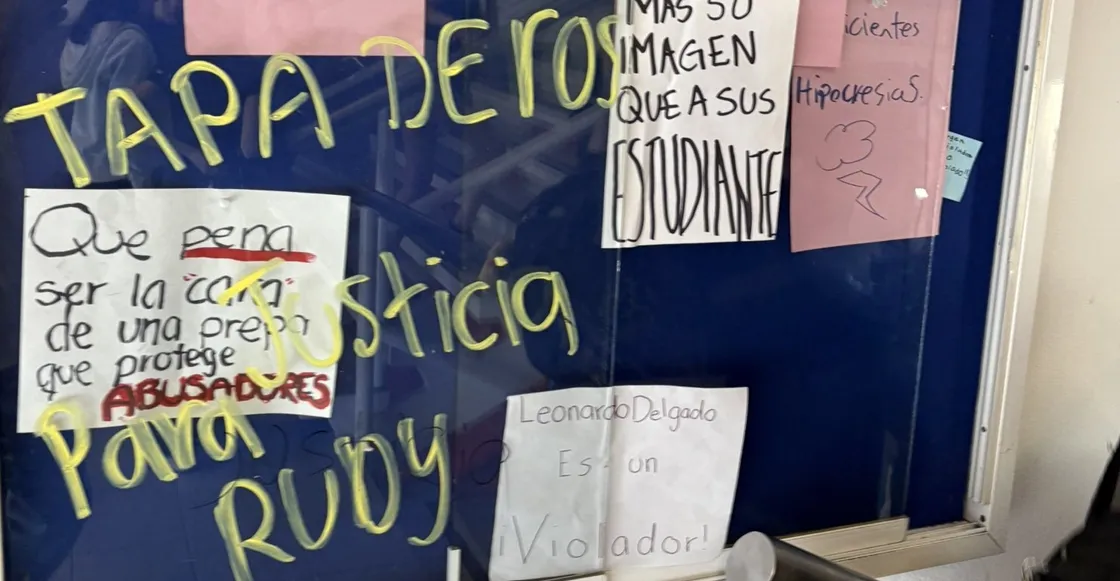 TAPADEROS
MAS SU
IMAGEN
QUE A SUS
ESTUDIANTE
icientes
Hipocresias.
Que pena
ser la "cara"
de una prepa
que protege
ABUSADORES
Justicia
Para
RUDY
Leonardo Delgado
Es un
¡Violador!